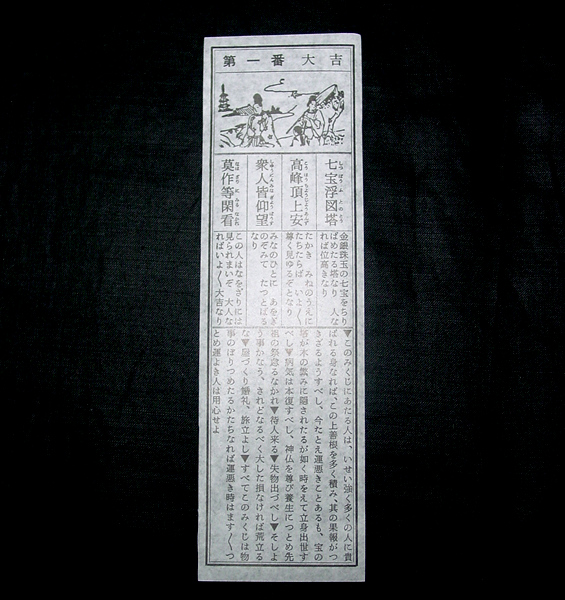 第一番 大吉
七宝浮図塔
高峰頂上安
衆人皆仰望
莫作等閑看
金銀珠玉の七宝をちり
ばめたる塔なり 人な
れば位高きなり
たかき みねのうえに
たちたらば いよ〳〵
尊く見ゆるぞとなり
みなのひとに あをぎ
のぞみて たつとばるる
なり
この人はなをざりには
見られまいぞ 大人な
ればいよ〳〵大吉なり
▼このみくじにあたる人は、いせい強く多くの人に貴
ばれる身なれば、この上善根を多く積み、其の果報がつ
きざるようすべし、今たとえ運悪きことあるも、宝の
塔が木の繁みに隠されたるが如く時をえて立身出世す
べし▼病気は本復すべし、神仏を尊び養生につとめ先
祖の祭怠るなかれ▼待人来る▼失物出づべし▼そしよ
う事かなう、されどなるべく大した損なければ荒立る
な▼屋づくり婚礼、旅立よし▼すべてこのみくじは物
事のぼりつめたるかたちなれば運悪き時はます〳〵つ
とめ運よき人は用心せよ